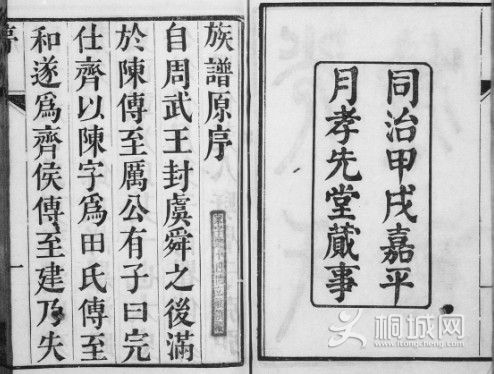 同治甲戌嘉平
月孝先堂蕆事
族譜原序
自周武王封虞舜之後滿
於陳傳至厲公有子曰完
仕齊以陳字爲田氏傳至
和遂爲齊侯傳至建乃失
序
一
桐城网
itongcheng.com